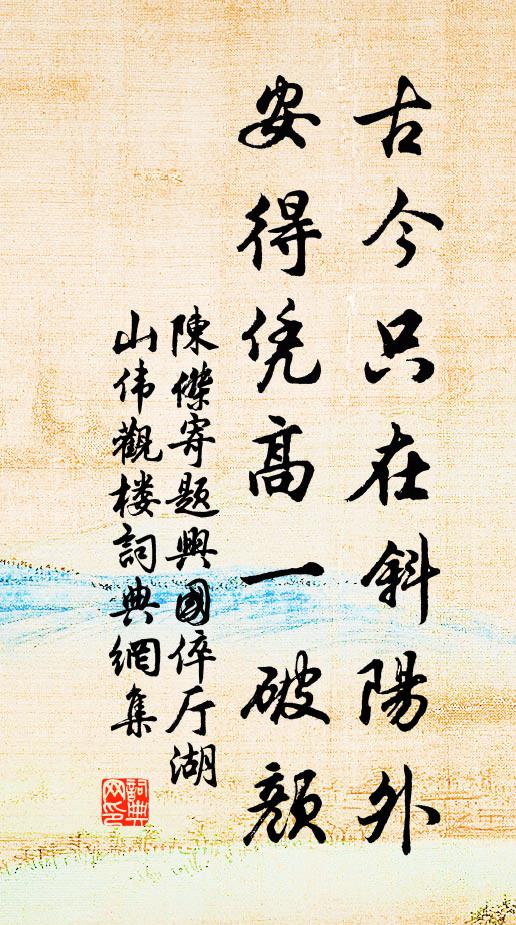 古今只在斜陽外
安得凭高一破顏
陳傑寄題興國倅厅湖
山伟觀楼詞典網集
詞典网印